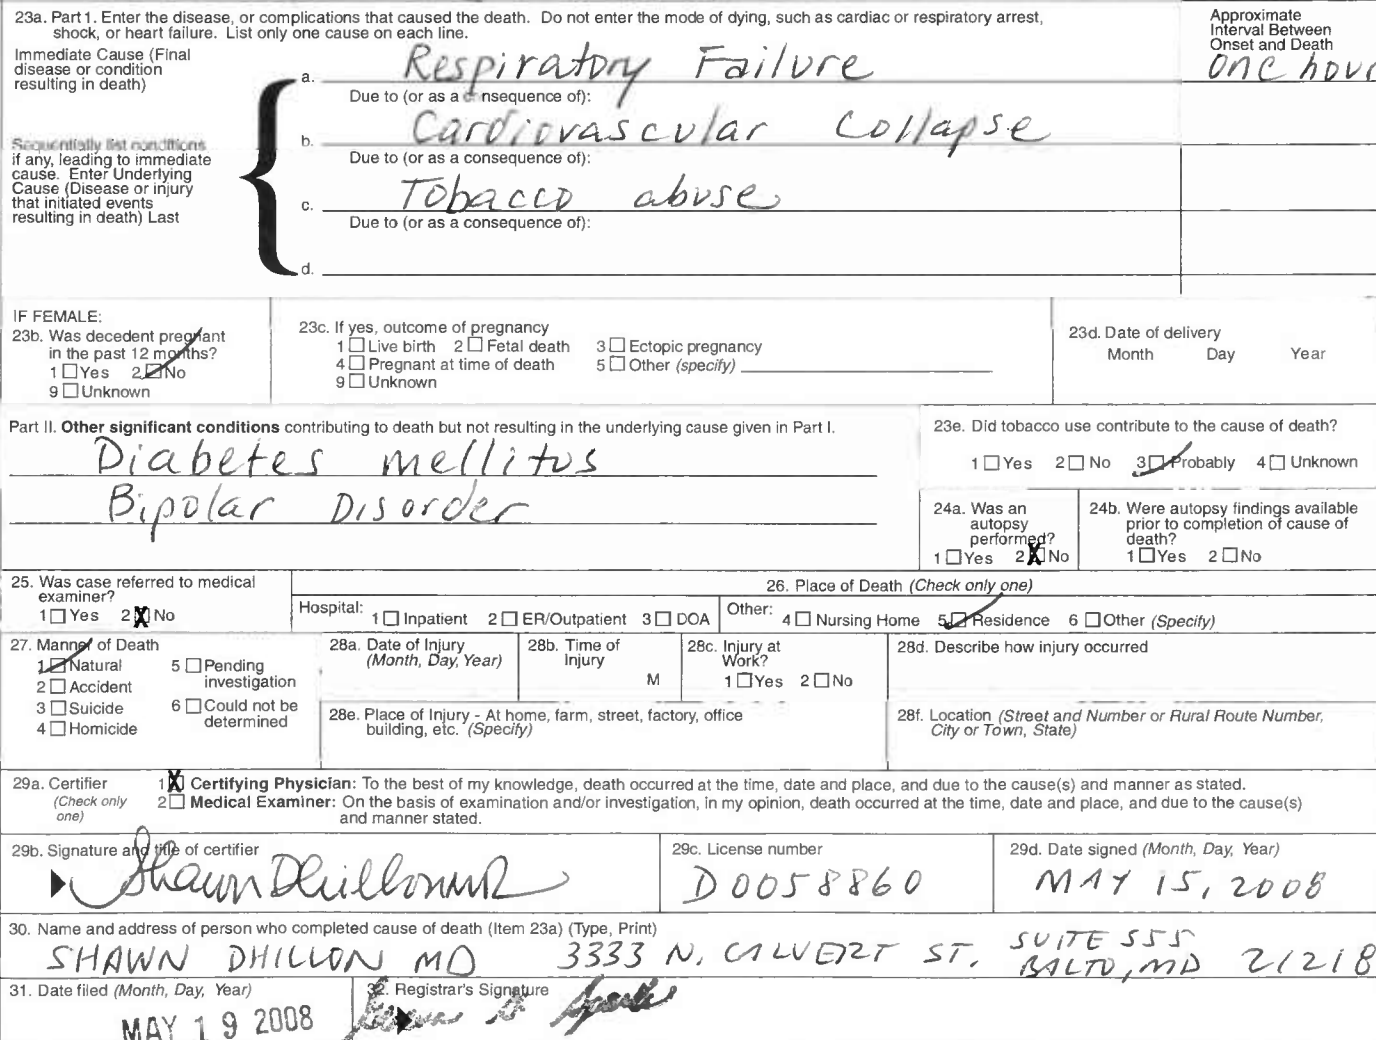 23a. Part 1. Enter the disease, or complications that caused the death. Do not enter the mode of dying, such as cardiac or respiratory arrest,
shock, or heart failure. List only one cause on each line.
Approximate
Interval Between
Onset and Death
Immediate Cause (Final
disease or condition
resulting in death)
a. Respiratory Failure
one hour
Due to (or as a consequence of):
b. Cardiovascular Collapse
Sequentially list conditions
if any, leading to immediate
cause. Enter Underlying
Cause (Disease or injury
that initiated events
resulting in death) Last
Due to (or as a consequence of):
c. Tobacco abuse
Due to (or as a consequence of):
d.
IF FEMALE:
23b. Was decedent pregnant
in the past 12 months?
1 Yes 2 No
9 Unknown
23c. If yes, outcome of pregnancy
1 Live birth 2 Fetal death 3 Ectopic pregnancy
4 Pregnant at time of death 5 Other (specify)
9 Unknown
23d. Date of delivery
Month Day Year
Part II. Other significant conditions contributing to death but not resulting in the underlying cause given in Part I.
Diabetes mellitus
Bipolar Disorder
23e. Did tobacco use contribute to the cause of death?
1 Yes 2 No 3 Probably 4 Unknown
24a. Was an
autopsy
performed?
1 Yes 2 No
24b. Were autopsy findings available
prior to completion of cause of
death?
1 Yes 2 No
25. Was case referred to medical
examiner?
1 Yes 2 No
26. Place of Death (Check only one)
Hospital: 1 Inpatient 2 ER/Outpatient 3 DOA
Other: 4 Nursing Home 5 Residence 6 Other (Specify)
27. Manner of Death
1 Natural 5 Pending
investigation
2 Accident
3 Suicide 6 Could not be
determined
4 Homicide
28a. Date of Injury
(Month, Day, Year)
28b. Time of
Injury
M
28c. Injury at
Work?
1 Yes 2 No
28d. Describe how injury occurred
28e. Place of Injury - At home, farm, street, factory, office
building, etc. (Specify)
28f. Location (Street and Number or Rural Route Number,
City or Town, State)
29a. Certifier
(Check only
one)
1 Certifying Physician: To the best of my knowledge, death occurred at the time, date and place, and due to the cause(s) and manner as stated.
2 Medical Examiner: On the basis of examination and/or investigation, in my opinion, death occurred at the time, date and place, and due to the cause(s)
and manner stated.
29b. Signature and title of certifier
Shawn Dhillon MD
29c. License number
D0058860
29d. Date signed (Month, Day, Year)
MAY 15, 2008
30. Name and address of person who completed cause of death (Item 23a) (Type, Print)
SHAWN DHILLON MD 3333 N. CALVERT ST. SUITE 555
BALTO, MD 21218
31. Date filed (Month, Day, Year)
MAY 19 2008
32. Registrar's Signature